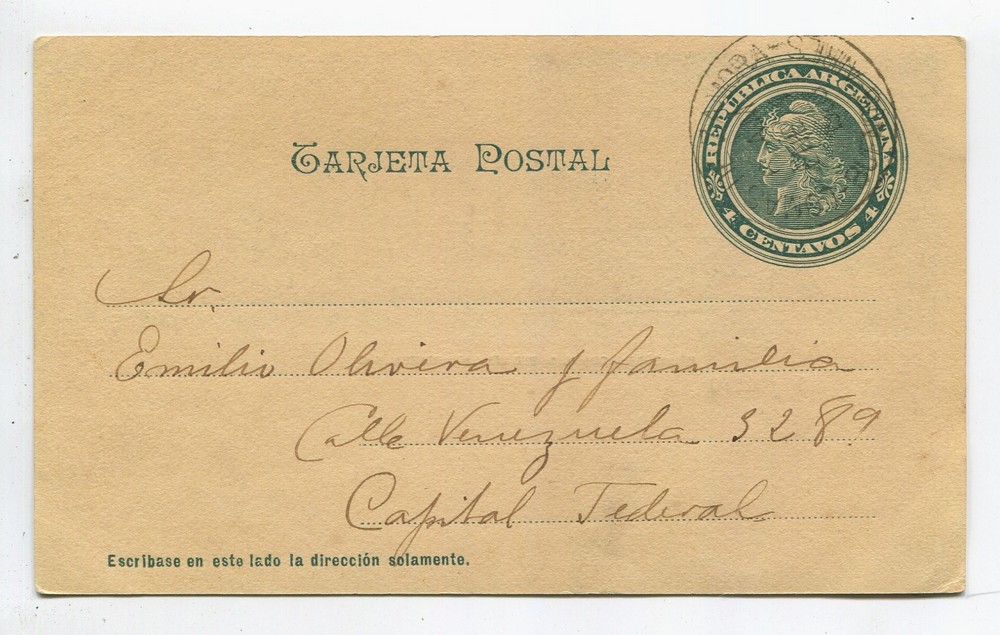 REPÚBLICA ARGENTINA
4 CENTAVOS 4
TARJETA POSTAL
Sr.
Emilio Olivera y familia
Calle Venezuela 3289
Capital Federal
Escribase en este lado la dirección solamente.